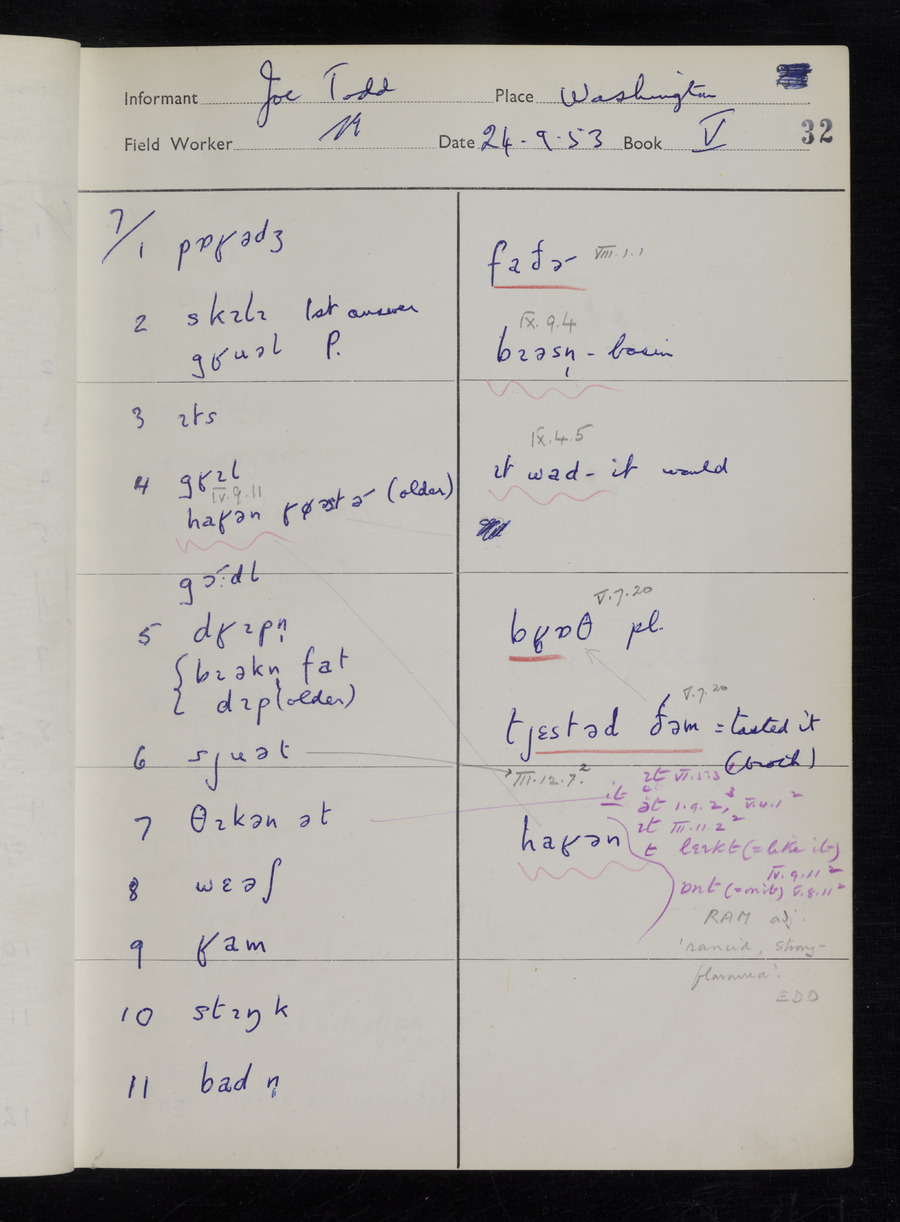 Informant Joe Todd Place Washington
Field Worker Date 24.9.53 Book V 32
7/1 pɒʁədʒ
2 skɪlɪ 1st answer
gʁuəl P.
3 ɪts
4 gʁɪl
IV.9.11
haʁən (older)
5 dʁɪpn̩
bɪəkn̩ fat
dɪp (older)
6 sjuət
7 θɪkən ət
8 wɛəʃ
9 ʁam
10 stɪŋk
11 badn̩
faðɚ VIII.1.1
IX.9.4
bɪəsn̩ - basin
IX.4.5
ɪt wad - it would
V.7.20
bʁɒθ pl.
V.7.20
tjɛstəd ðəm = tasted it
(broth)
III.12.7.²
it
ət 1.9.2,³ V.4.1²
ɪt III.11.2²
haʁən
t lɛɪkt (= like it)
IV.9.11²
ɒnt (= on it) V.8.11²
RAM adj.
'rancid, strong-
flavoured'.
EDD